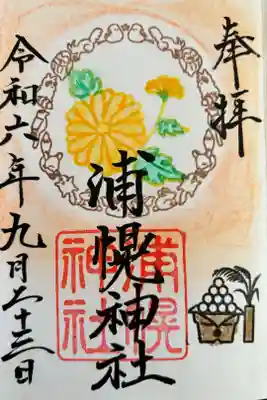 奉拝
浦幌神社
浦幌神社
令和六年九月二十三日